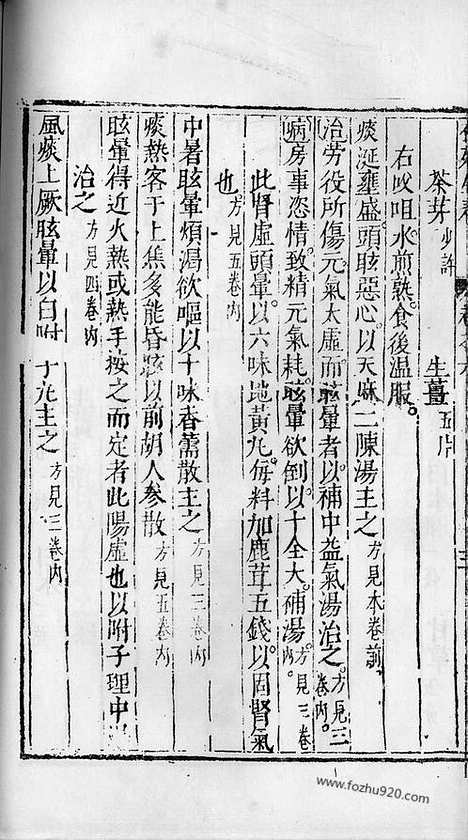 茶芽少許　生薑五片
右㕮咀水煎熟食後温服。
痰涎壅盛頭眩惡心以天麻二陳湯主之方見本卷前
治労役所傷元氣太虛而眩暈者以補中益氣湯治之。方見三卷内。
病房事恣情致精元氣耗。眩暈欲倒以十全大補湯。方見三卷内。
此腎虛頭暈以六味地黃丸每料加鹿茸五錢以固腎氣
也。方見五卷内
中暑眩暈煩渴欲嘔以十味香薷散主之方見三卷内
痰熱客于上焦多能昏眩以前胡人參散方見五卷内
眩暈得近火熱或熱手按之而定者此陽虛也以附子理中
治之方見四卷内
風痰上厥眩暈以白附 丸主之方見三卷内
www.fozhu920.com